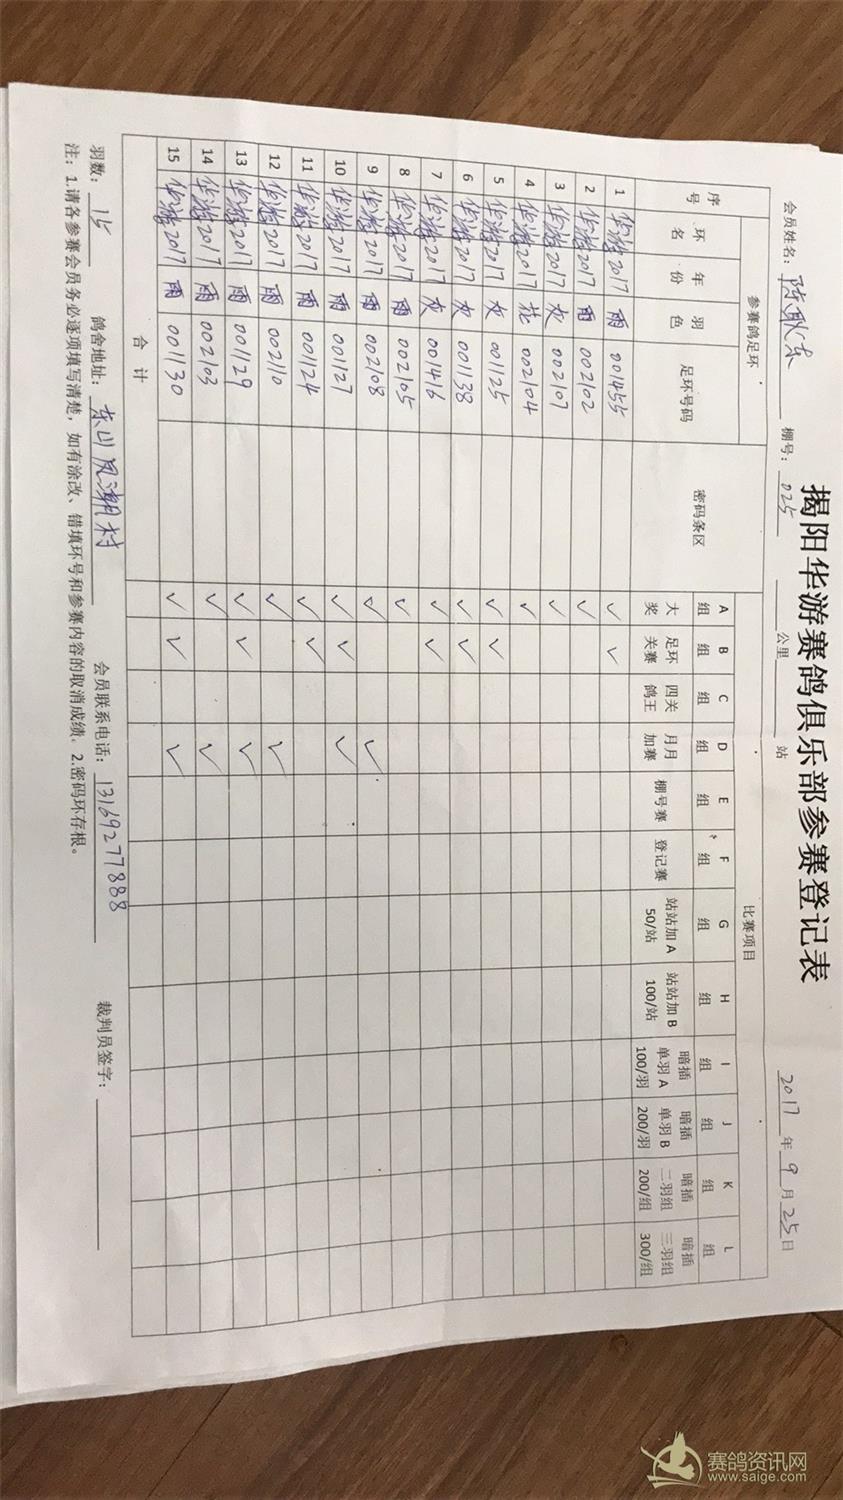 揭阳华游赛鸽俱乐部参赛登记表
会员姓名：陈耿东 棚号：025 公里 站 2017年9月25日
序号 参赛鸽足环 密码条区 比赛项目
环名 年份 羽色 足环号码 A组 B组 C组 D组 E组 F组 G组 H组 I组 J组 K组 L组
大奖 足环关赛 四关鸽王 月月加赛 棚号赛 登记赛 站站加A 50/站 站站加B 100/站 暗插单羽A 100/羽 暗插单羽B 200/羽 暗插二羽组 200/组 暗插三羽组 300/组
1 华游 2017 雨 001455 ✓ ✓
2 华游 2017 雨 002102 ✓
3 华游 2017 灰 002107 ✓
4 华游 2017 花 002104 ✓
5 华游 2017 灰 001125 ✓ ✓
6 华游 2017 灰 001138 ✓ ✓
7 华游 2017 灰 001416 ✓ ✓
8 华游 2017 雨 002105 ✓
9 华游 2017 雨 002108 ✓ ✓
10 华游 2017 雨 001127 ✓ ✓ ✓
11 华游 2017 雨 001124 ✓ ✓
12 华游 2017 雨 002110 ✓ ✓
13 华游 2017 雨 001129 ✓ ✓ ✓
14 华游 2017 雨 002103 ✓ ✓
15 华游 2017 雨 001130 ✓ ✓ ✓
合计
羽数：15 鸽舍地址：东山凤潮村 会员联系电话：13169277888 裁判员签字：
注：1.请各参赛会员务必逐项填写清楚，如有涂改、错填环号和参赛内容的取消成绩。2.密码环存根。
赛鸽资讯网
www.saige.com